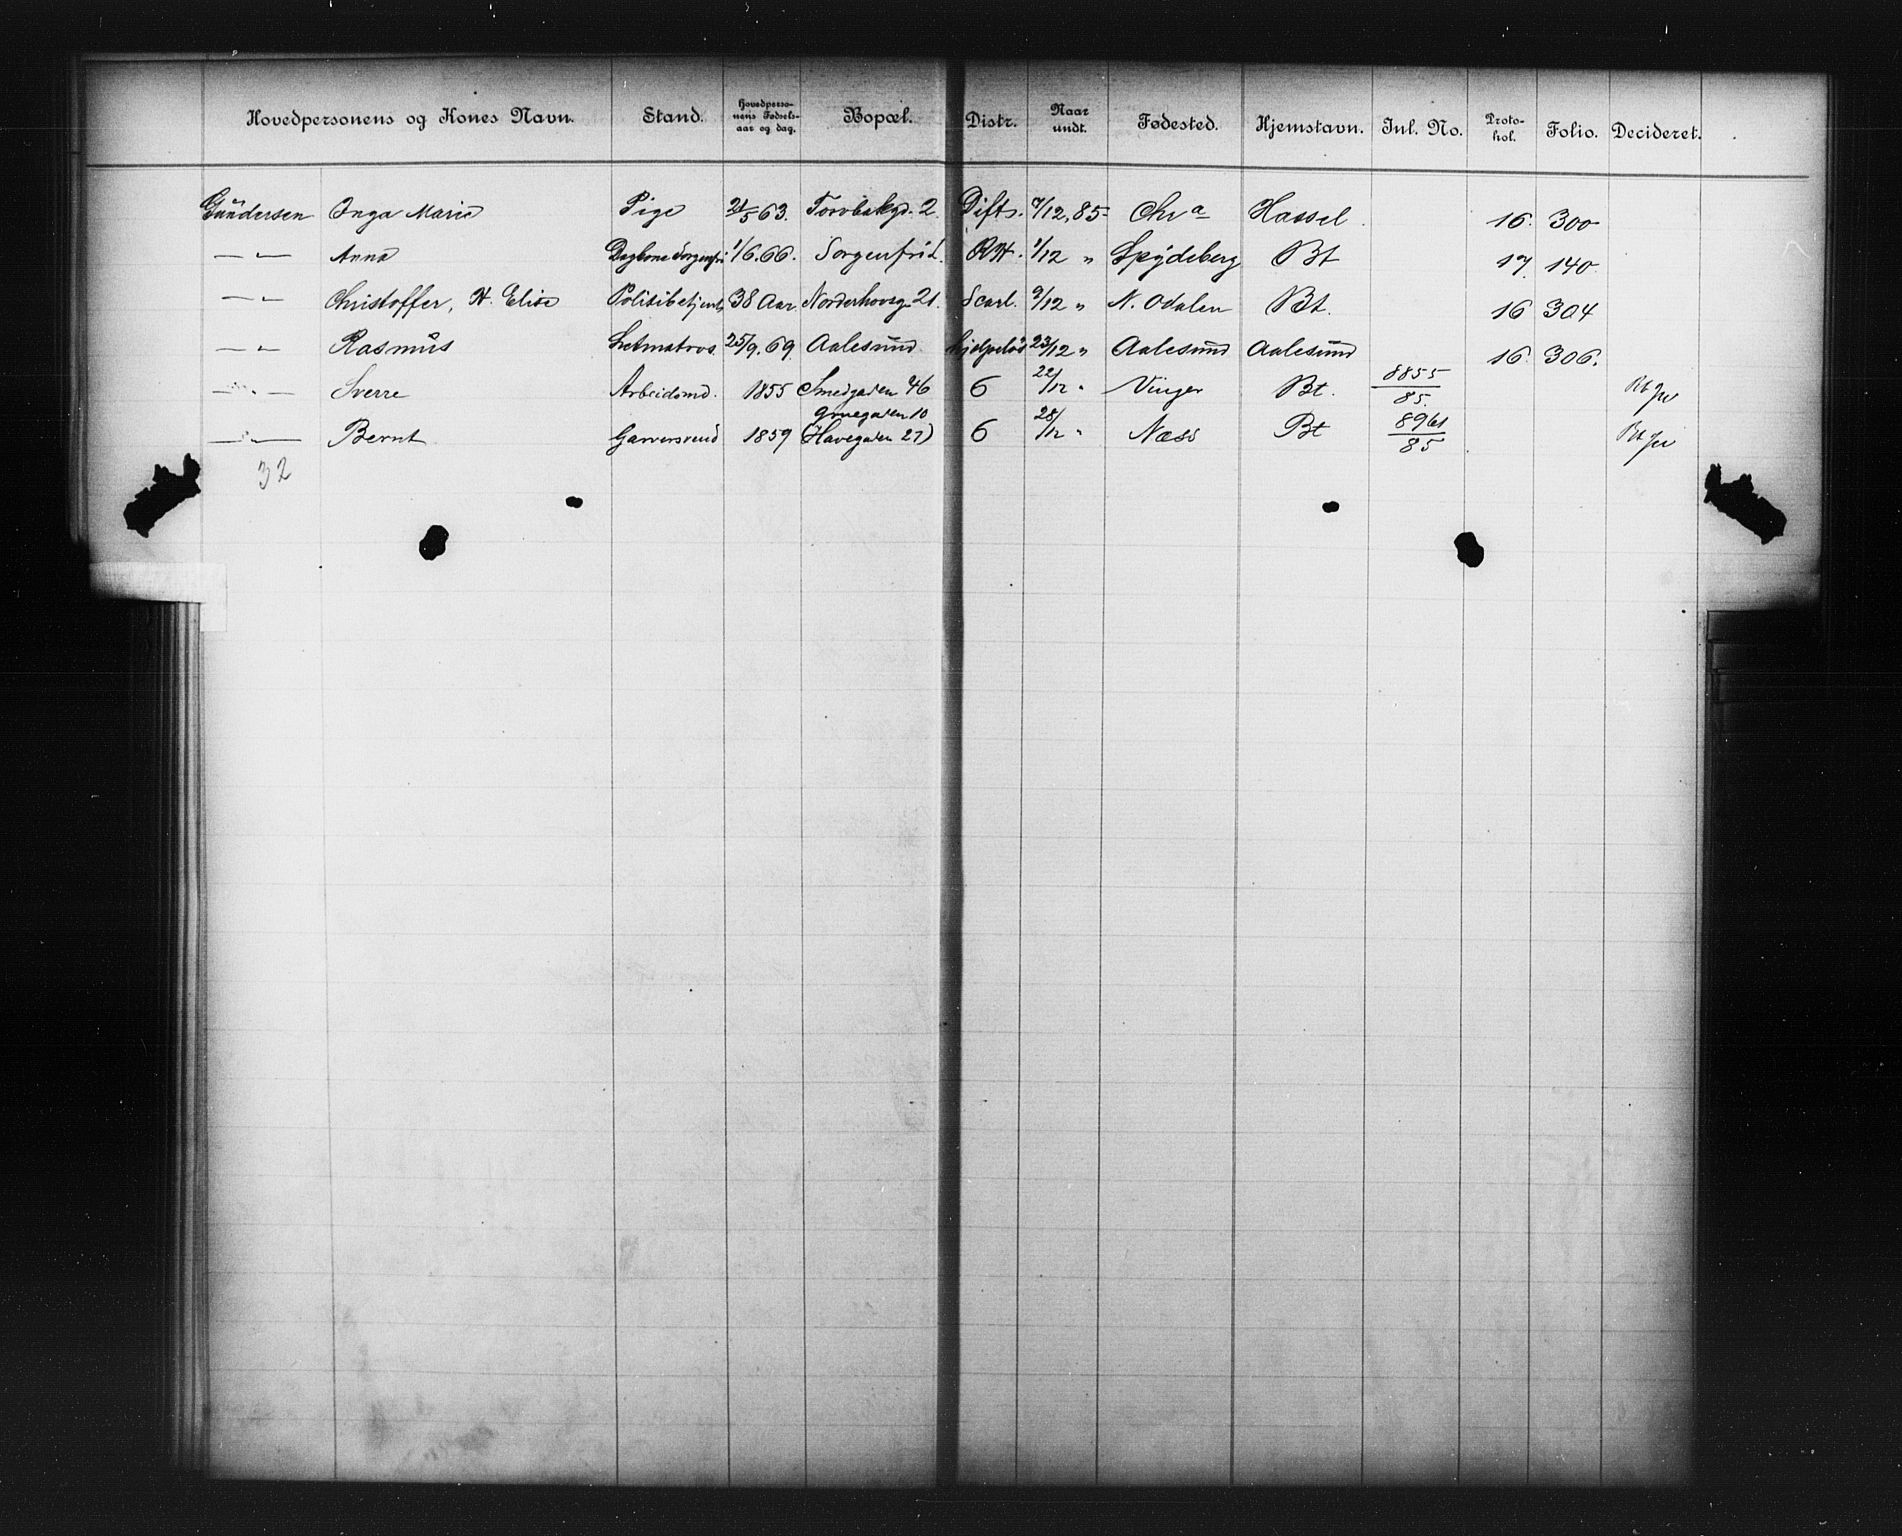 Hovedpersonens og Kones Navn. Stand. Hovedpersonens Fødselsaar og dag. Bopæl. Distr. Naar undt. Fødested. Hjemstavn. Inl. No. Protokol. Folio. Decideret.
Gundersen Inga Marie Pige 21/5 63. Torvbakgd. 2. 7/12, 85 Chr a Hassel 16. 300
— " — Anna 1/6. 66. Sorgenfri RH. 1/12 " Spydeberg Bt 17 140
— " — Christoffer, H. Elise Politibetjent 38 Aar Norderhovsg 21. 9/12 " N. Odalen Bt. 16 304
— " — Rasmus Letmatros 25/9. 69 Aalesund 23/12 " Aalesund Aalesund 16. 306.
— " — Sverre Arbeidsmd. 1855 Smedgaden 46 6 22/12 " Vinger Bt. 8855/85.
Gruegaden 10
— " — Bernt Garversvend 1859 (Havegaden 27) 6 28/12 " Næss Bt 8961/85
32